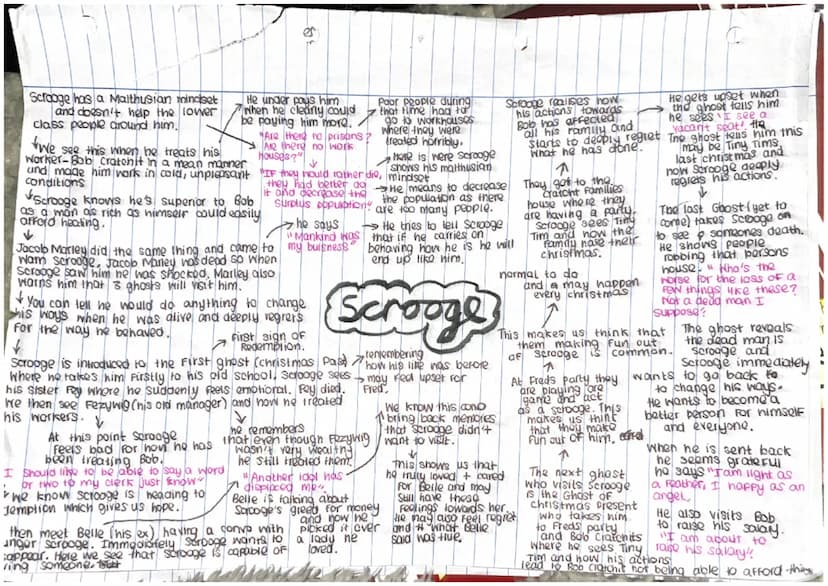 Scrooge has a Malthusian mindset
and doesn't help the lower
class people around him.
We see this when he treats his
worker-Bob Cratchit in a mean manner
and made him work in cold, unpleasant
conditions
Scrooge knows he's superior to Bob
as a man as rich as himself could easily
afford heating.
Jacob Marley did the same thing and came to
warn scrooge. Jacob Marley was dead so when
Scrooge saw him he was shocked. Marley also
warns him that 3 ghosts will visit him.
You can tell he would do anything to change
his ways when he was alive and deeply regrets
for the way he behaved.
First sign of
Redemption.
Scrooge is introduced to the First ghost (christmas Past)
where he takes him firstly to his old school. Scrooge sees
his sister Fey where he suddenly feels emotional. Fey died.
We then see Fezywig (his old manager) and how he treated
his workers.
At this point Scrooge
feels bad for how he has
been treating Bob.
I should like to be able to say a word
or two to my clerk just know"
We know Scrooge is heading to
demption which gives us hope.
then meet Belle (his ex) having a convo with
nger scrooge. Immediatly Scrooge wants to
appear. Here we see that scrooge is capable of
ing someone.
He under pays him
when he clearly could
be paying him more.
"Are there no prisons?
Are there no work
houses?"
"If they would rather die,
they had better do
it and decrease the
surplus population"
he says
"Mankind was
my buisness"
Poor people during
that time had to
go to workhouses
where they were
treated horribly.
here is were scrooge
shows his malthusian
mindset
He means to decrease
the population as there
are too many people.
He tries to tell Scrooge
that if he carries on
behaving how he is he will
end up like him.
scrooge
remembering
how his life was before.
may feel upset for
Fred.
he remembers
that even though Fezywig
wasn't very wealthy
he still treated them.
"Another idol has
displaced me"
Belle is talking about
Scrooge's greed for money
and now he
picked it over
a lady he
loved.
We know this and
bring back memories
that Scrooge didn't
want to visit.
This shows us that
he truly loved + cared
for Belle and may
still have those
feelings towards her.
He may also feel regret
and + what Belle
said was true.
Scrooge realises how
his actions towards
Bob has affected
all his family and
starts to deeply regret
what he has done.
They got to the
Cratchit Families
house where they
are having a party.
Scrooge sees Tiny
Tim and how the
family hate their
christmas.
normal to do
and a may happen
every christmas
This makes us think that
them making fun out
of scrooge is common.
At Freds party they
are playing are
game and act
as a scrooge. This
makes us think
that they make
fun out of him.
The next ghost
who visits Scrooge
is the Ghost of
Christmas present
who takes him
to Freds party
and Bob Cratchits
where he sees Tiny
Tim and how his actions
lead to Bob Cratchit not being able to afford this
He gets upset when
the ghost tells him
he sees "I see a
vacant seat". The
The ghost tells him this
may be Tiny Tims
last christmas and
now Scrooge deeply
regrets his actions.
The last Ghost (yet to
come) takes Scrooge on
to see someones death.
He shows people
robbing that persons
house. "Who's the
worse for the loss of a
few things like these?
Not a dead man I
suppose?
The ghost reveals
the dead man is
Scrooge and
Scrooge immediately
wants to go back to
to change his ways.
He wants to become a
better person for himself
and everyone.
When he is sent back
he seems grateful
he says "I am light as
a feather, I happy as an
angel,
He also visits Bob
to raise his salary.
"I am about to
raise his salary".